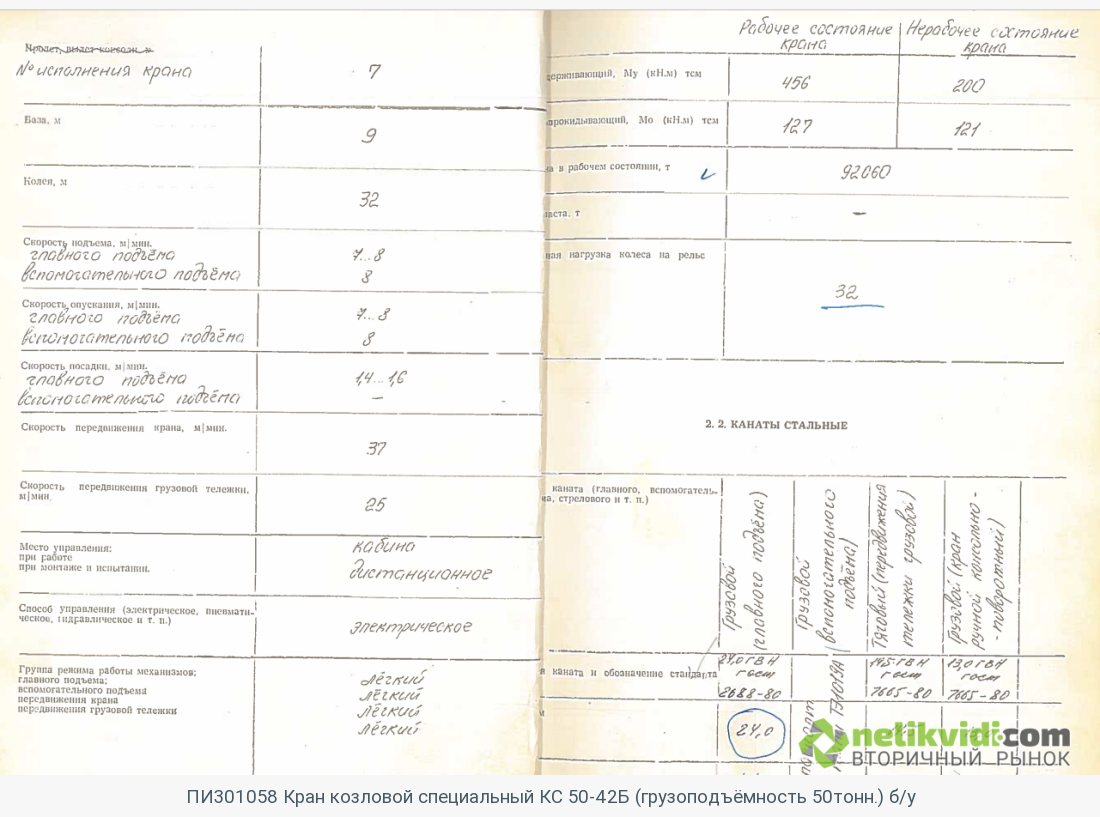 Пролет, вылет консоли, м
№ исполнения крана 7
База, м 9
Колея, м 32
Скорость подъема, м|мин.
главного подъёма 7...8
вспомогательного подъёма 8
Скорость опускания, м|мин.
главного подъёма 7...8
вспомогательного подъёма 8
Скорость посадки, м|мин.
главного подъёма 1,4...1,6
вспомогательного подъёма –
Скорость передвижения крана, м|мин.
37
Скорость передвижения грузовой тележки,
м|мин. 25
Место управления: кабина
при работе
при монтаже и испытании. дистанционное
Способ управления (электрическое, пневмати-
ческое, гидравлическое и т. п.) электрическое
Группа режима работы механизмов:
главного подъема; лёгкий
вспомогательного подъема лёгкий
передвижения крана лёгкий
передвижения грузовой тележки лёгкий
Рабочее состояние крана
Нерабочее состояние крана
держивающий, Му (кН.м) тсм 456 200
прокидывающий, Мо (кН.м) тсм 127 121
на в рабочем состоянии, т 92060
ласта. т –
ная нагрузка колеса на рельс
32
2. 2. КАНАТЫ СТАЛЬНЫЕ
каната (главного, вспомогатель-
на, стрелового и т. п.)
Грузовой
(главного подъёма)
Грузовой
(вспомогательного
подъёма)
Тяговый (передвижения
тележки грузовой)
Грузовой (кран
ручной консольно-
-поворотный)
я каната и обозначение стандарта
24,0 ГВН
гост
2688-80
14,5-ГВН
гост
7665-80
13,0 ГВН
гост
7665-80
м
24,0
netikvidi.com
ВТОРИЧНЫЙ РЫНОК
ПИ301058 Кран козловой специальный КС 50-42Б (грузоподъёмность 50тонн.) б/у